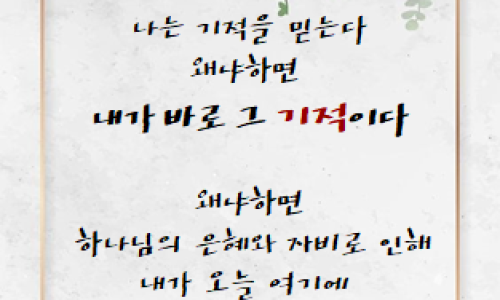 나는 기적을 믿는다
왜냐하면
내가 바로 그 기적이다
왜냐하면
하나님의 은혜와 자비로 인해
내가 오늘 여기에